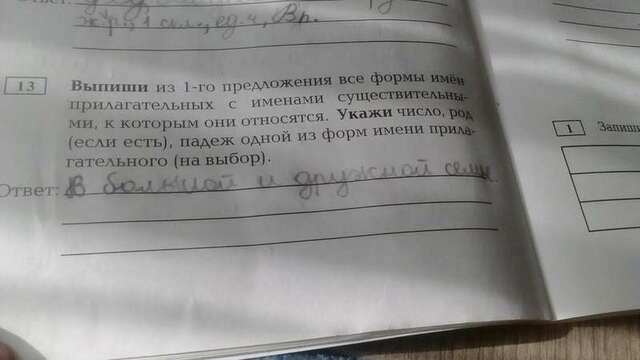 Ответ:
ж.р., 1 скл., ед.ч., В.п.
13
Выпиши из 1-го предложения все формы имён
прилагательных с именами существительны-
ми, к которым они относятся. Укажи число, род
(если есть), падеж одной из форм имени прила-
гательного (на выбор).
Ответ: В большой и дружной семье
1 Запиши